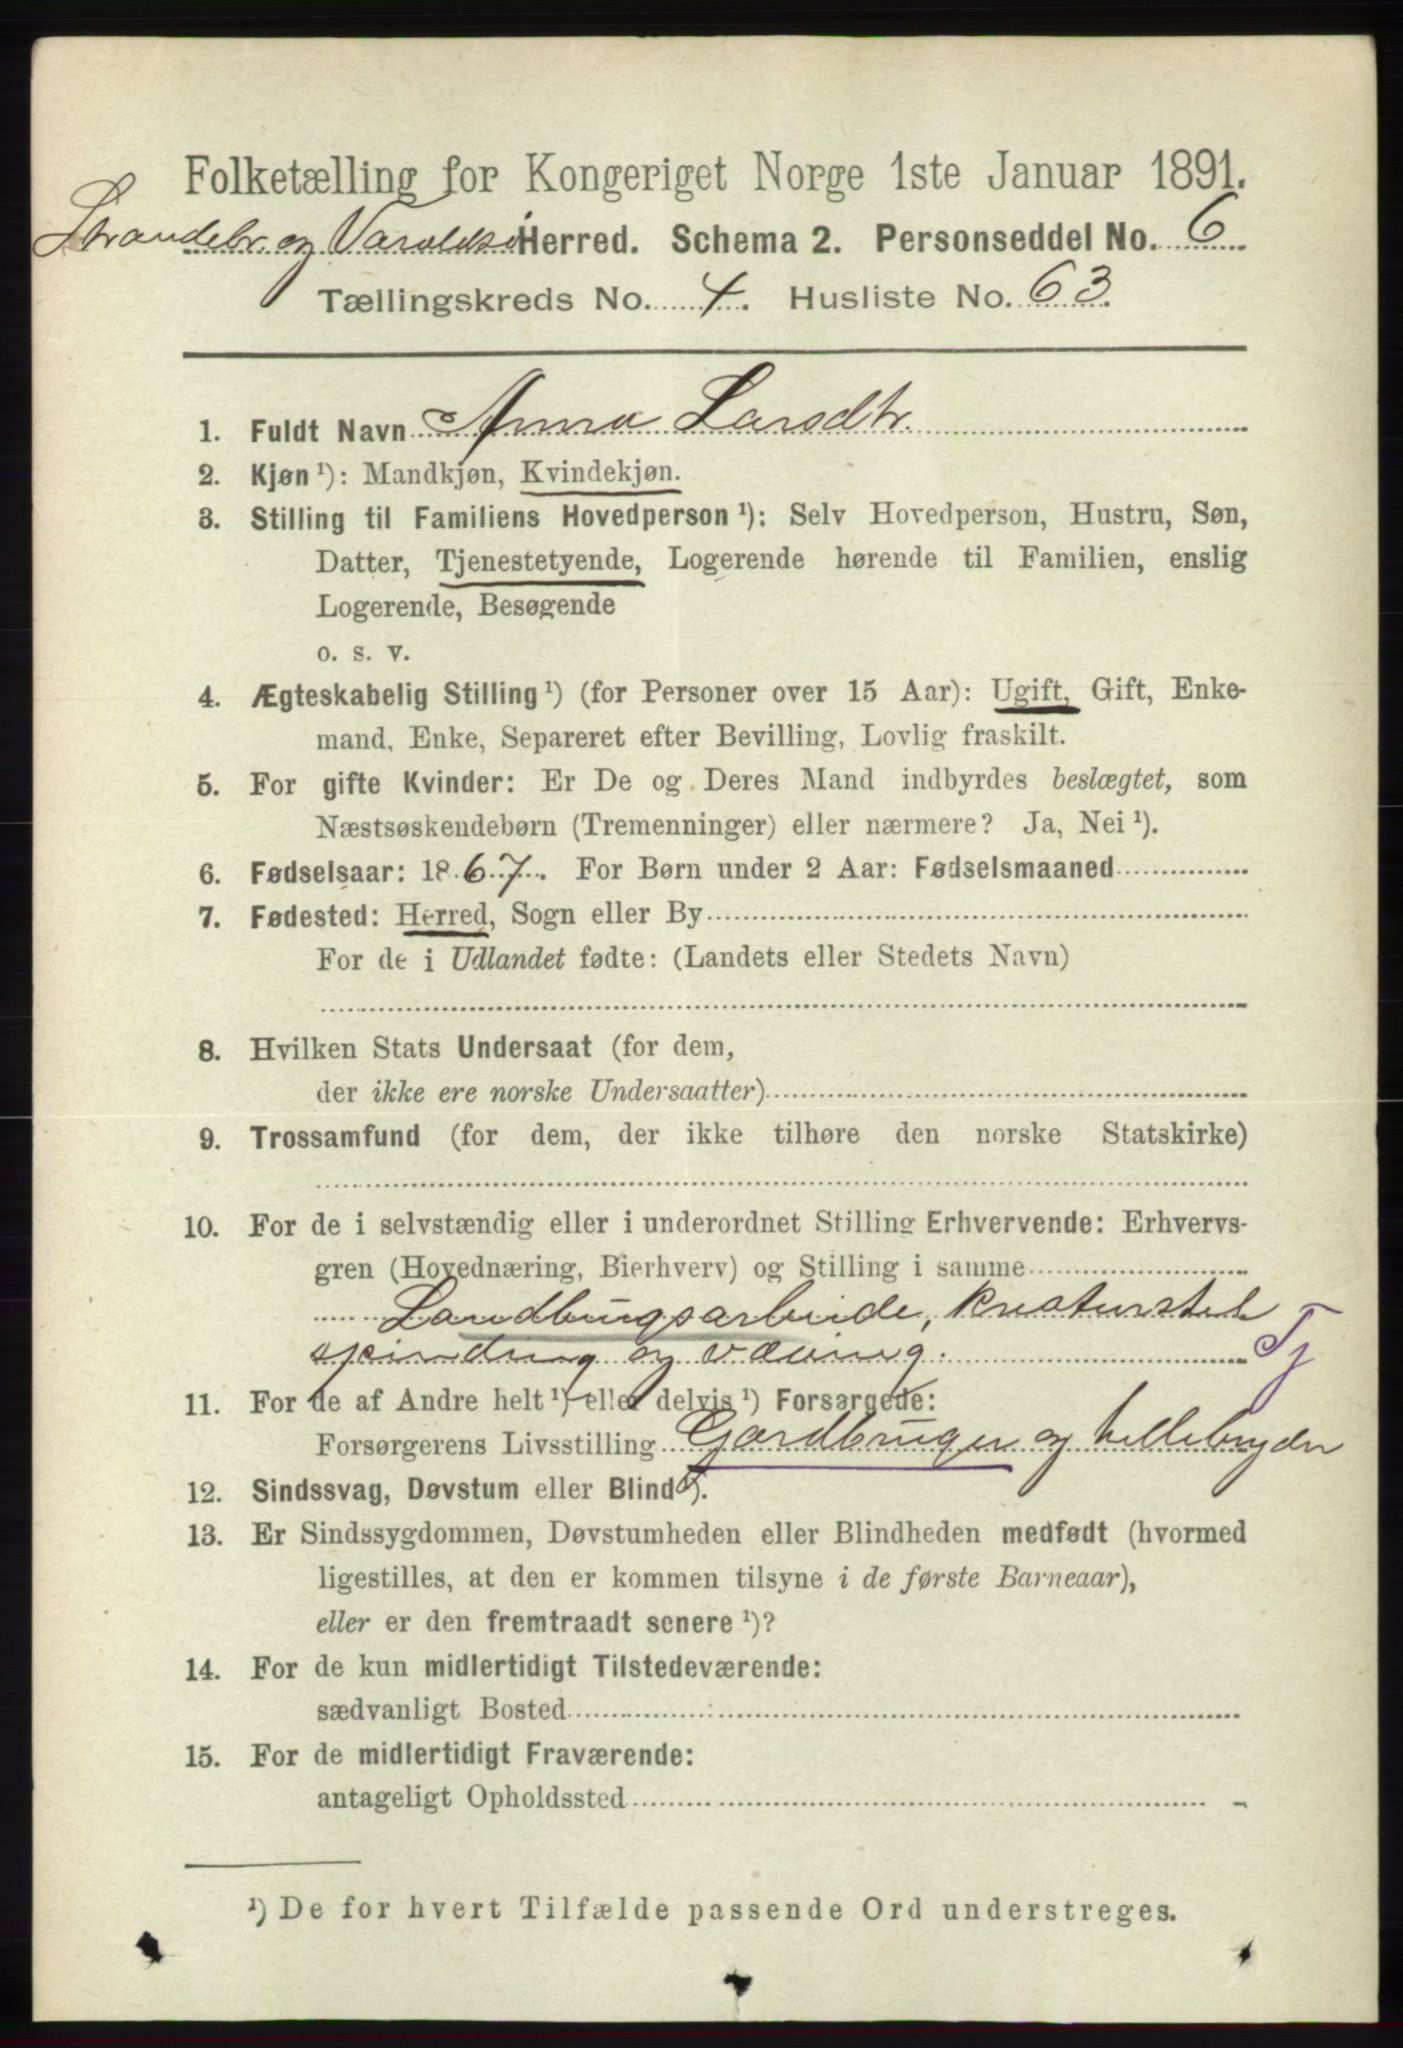 Folketælling for Kongeriget Norge 1ste Januar 1891.
Strandebr. og Varaldsø Herred. Schema 2. Personseddel No. 6
Tællingskreds No. 4. Husliste No. 63.
1. Fuldt Navn Anna Larsdtr.
2. Kjøn ¹): Mandkjøn, Kvindekjøn.
3. Stilling til Familiens Hovedperson ¹): Selv Hovedperson, Hustru, Søn,
Datter, Tjenestetyende, Logerende hørende til Familien, enslig
Logerende, Besøgende
o. s. v.
4. Ægteskabelig Stilling ¹) (for Personer over 15 Aar): Ugift, Gift, Enke-
mand, Enke, Separeret efter Bevilling, Lovlig fraskilt.
5. For gifte Kvinder: Er De og Deres Mand indbyrdes beslægtet, som
Næstsøskendebørn (Tremenninger) eller nærmere? Ja, Nei ¹).
6. Fødselsaar: 1867. For Børn under 2 Aar: Fødselsmaaned
7. Fødested: Herred, Sogn eller By
For de i Udlandet fødte: (Landets eller Stedets Navn)
8. Hvilken Stats Undersaat (for dem,
der ikke ere norske Undersaatter)
9. Trossamfund (for dem, der ikke tilhøre den norske Statskirke)
10. For de i selvstændig eller i underordnet Stilling Erhvervende: Erhvervs-
gren (Hovednæring, Bierhverv) og Stilling i samme
Landbrugsarbeide, kreaturstel
spinding og væving. Tj
11. For de af Andre helt ¹) eller delvis ¹) Forsørgede:
Forsørgerens Livsstilling Gardbruger og hellebryder
12. Sindssvag, Døvstum eller Blind ¹).
13. Er Sindssygdommen, Døvstumheden eller Blindheden medfødt (hvormed
ligestilles, at den er kommen tilsyne i de første Barneaar),
eller er den fremtraadt senere ¹)?
14. For de kun midlertidigt Tilstedeværende:
sædvanligt Bosted
15. For de midlertidigt Fraværende:
antageligt Opholdssted
¹) De for hvert Tilfælde passende Ord understreges.